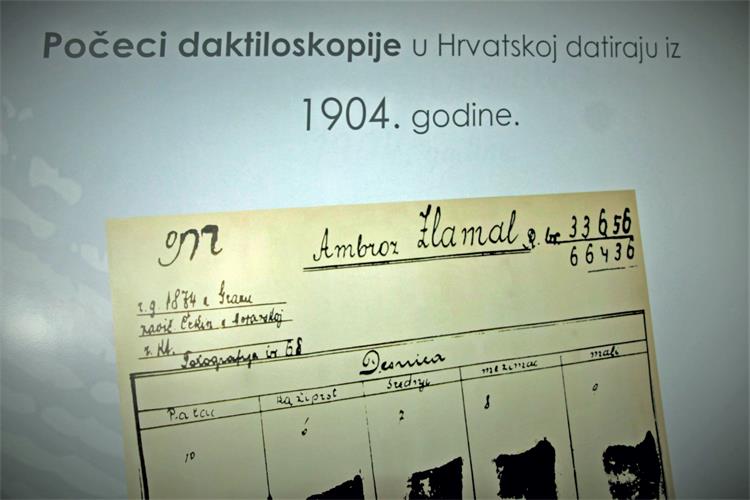 Počeci daktiloskopije u Hrvatskoj datiraju iz
1904. godine.
Ambroz Zlamal, p. br. 33656
66436
r.g. 1874 u Grazu
zavič. Čekin u Moravskoj
r. kt.
Fotografija iz 68
Desnica
Palac Kažiprst Srednji mezimac mali
10 6 7 8 9